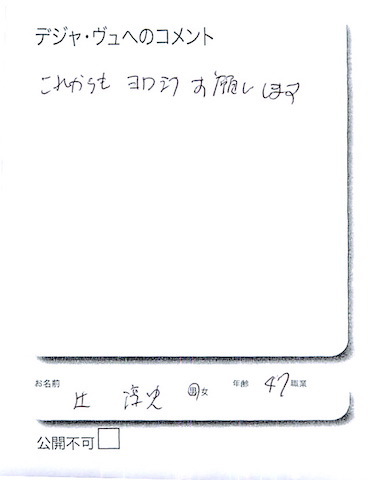 デジャ・ヴュへのコメント
これからも ヨロシク お願いします
お名前 辻 淳史 男 女 年齢 47 職業
公開不可